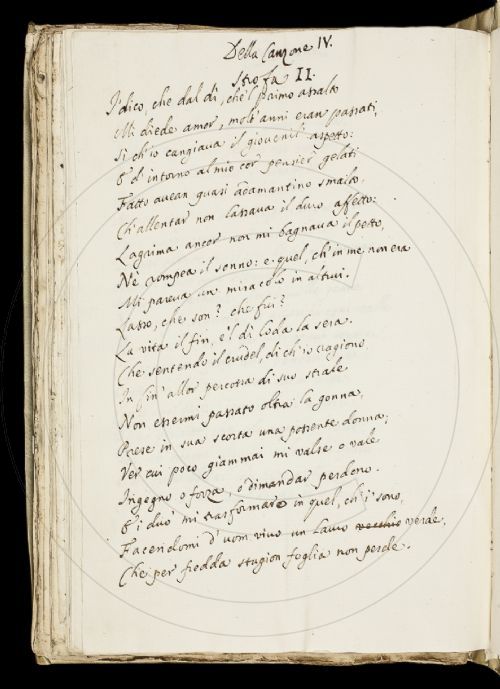 Della Canzone IV.
Strofa II.
I' dico, che dal dì, che'l primo assalto
Mi diede amor, molt'anni eran passati,
Si ch'io cangiava il giovenil aspetto:
E d'intorno al mio cor pensier gelati
Fatto avean quasi adamantino smalto,
Ch'allentar non lassava il duro affetto:
Lagrima ancor non mi bagnava il petto,
Nè rompea il sonno: e quel, ch'in me non era
Mi pareva un miracolo in altrui.
Lasso, che son? che fui?
La vita il fin, e'l dì loda la sera.
Che sentendo il crudel, di ch'io ragiono
In fin' allor percossa di suo strale
Non essermi passato oltra la gonna,
Prese in sua scorta una possente donna;
Ver cui poco giammai mi valse o vale
Ingegno o forza, o dimandar perdono.
E i duo' mi trasformaro in quel, ch'i' sono,
Facendomi d'uom vivo un lauro vecchio verde,
Che per fredda stagion foglia non perde.